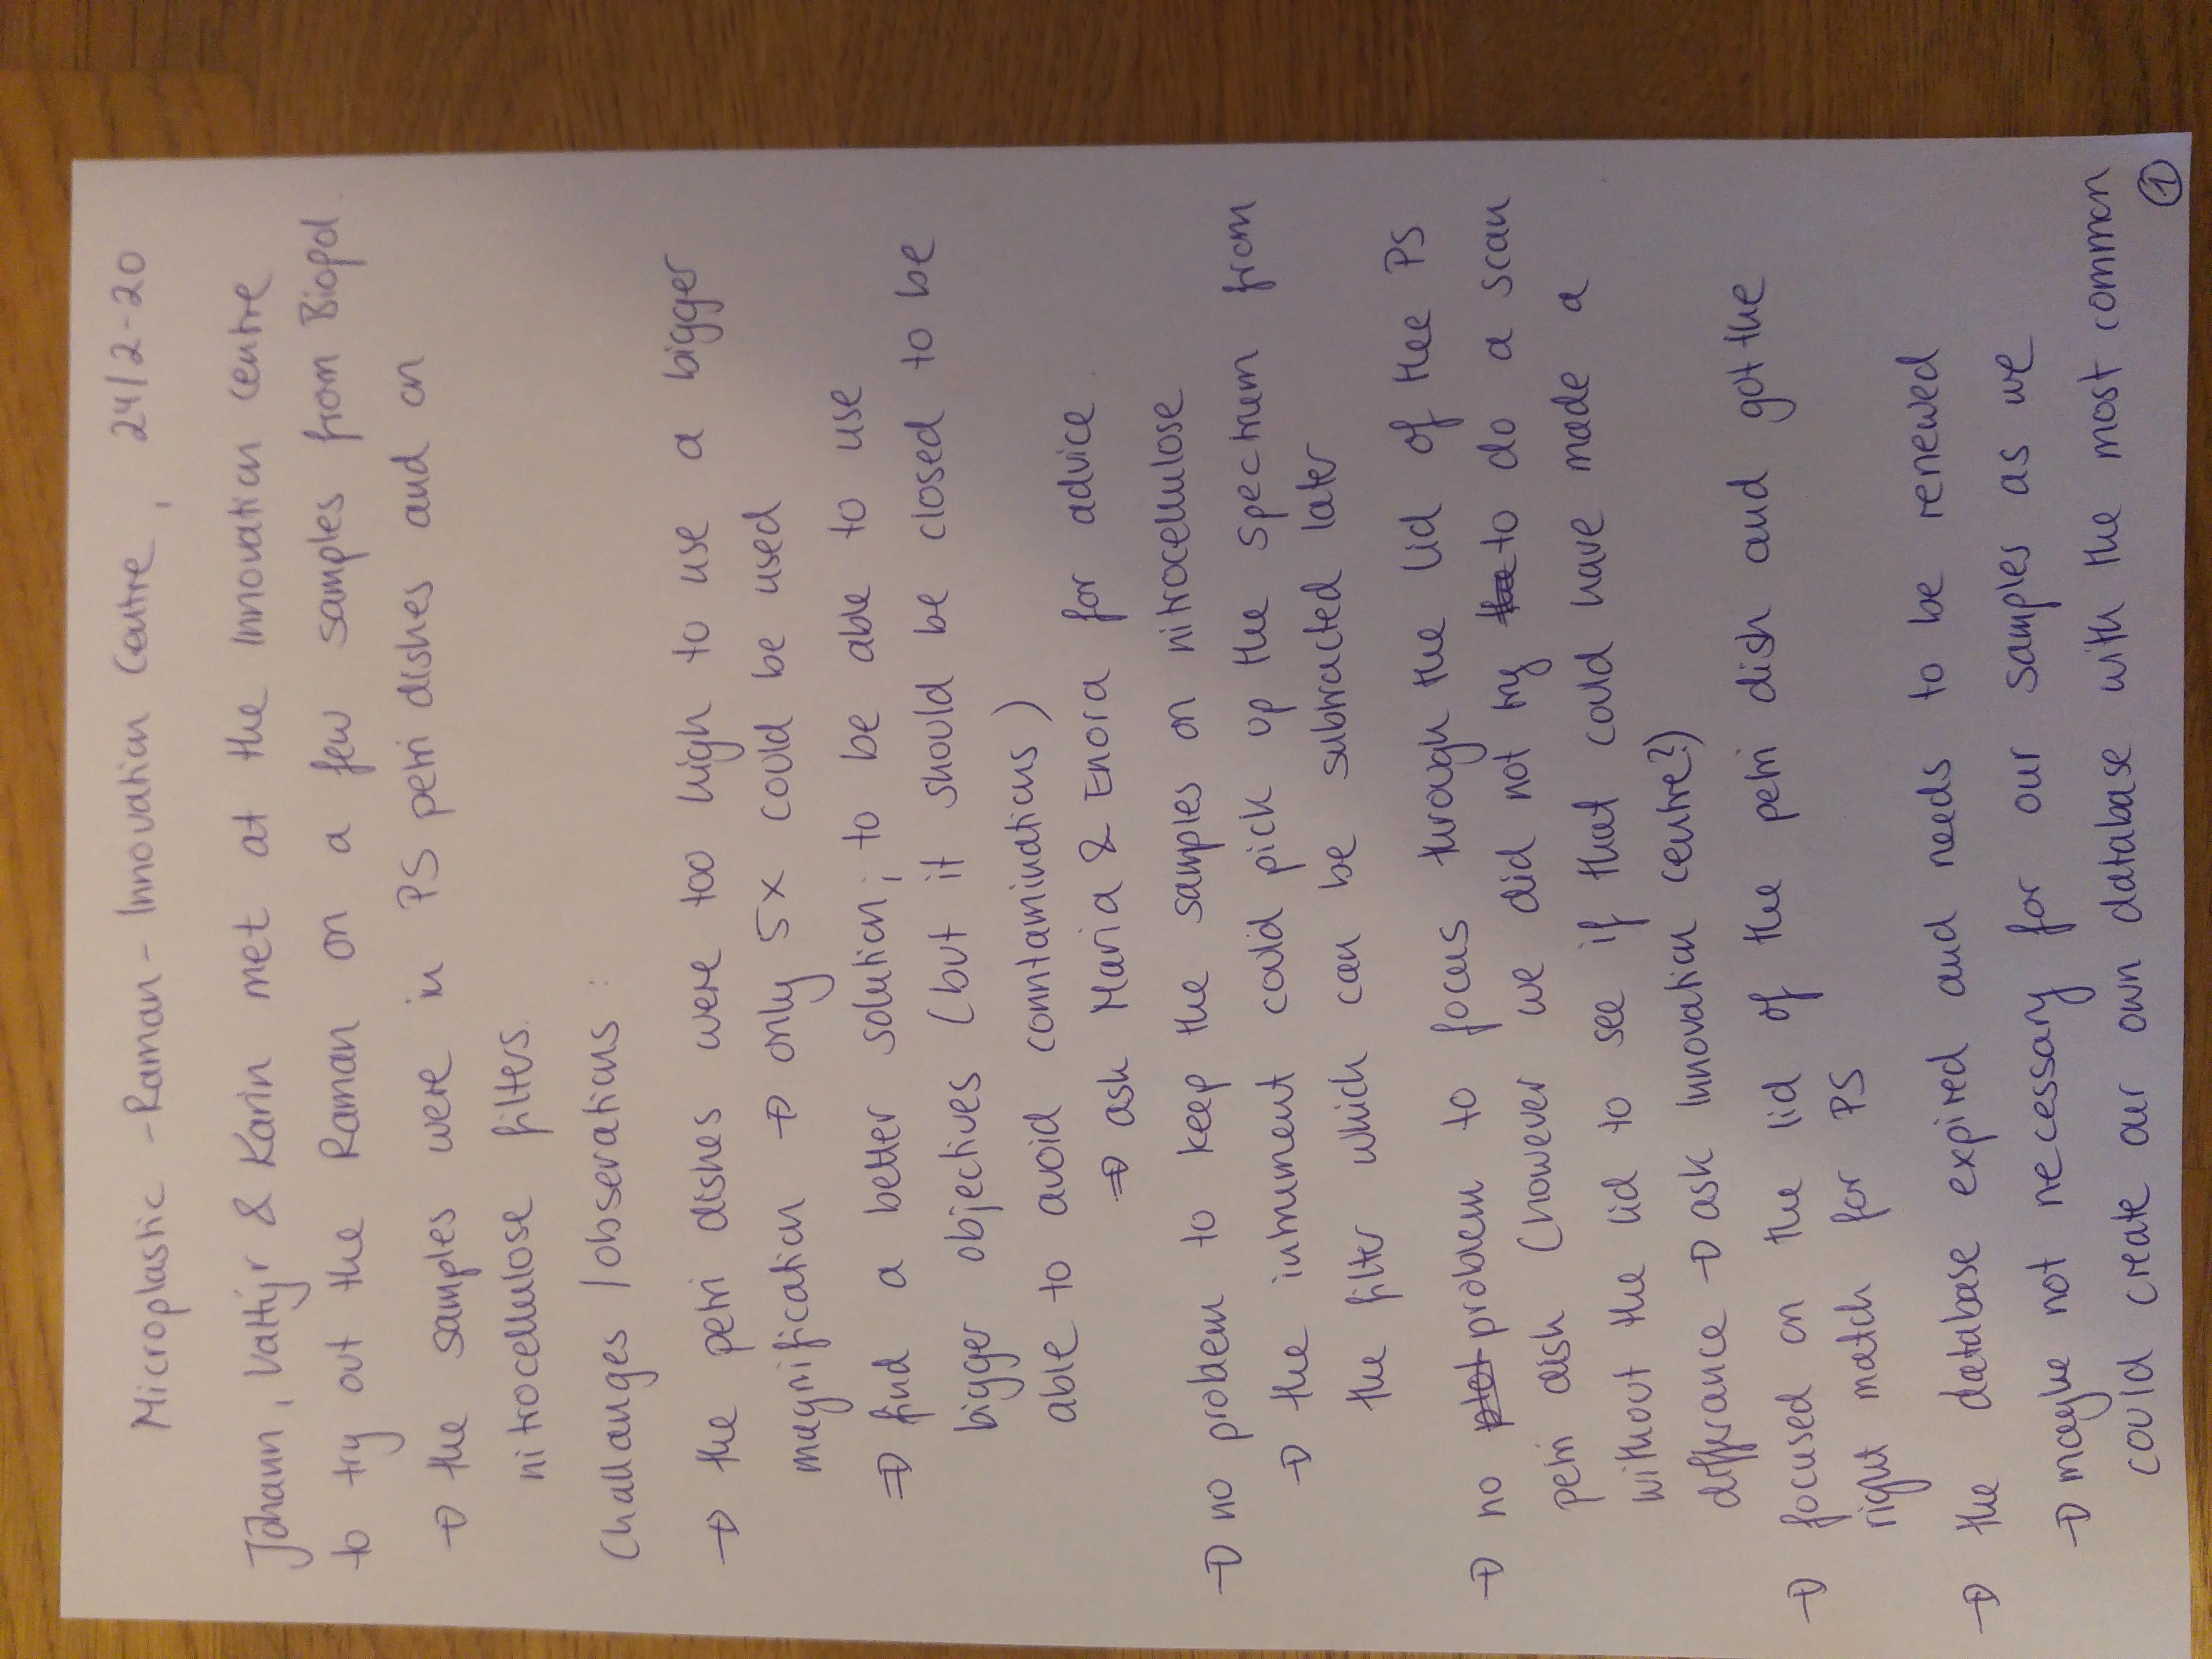 Microplastic - Raman - Innovation Centre, 24/2-20
Jóhann, Valtýr & Karin met at the Innovation centre
to try out the Raman on a few samples from Biopol.
→ the samples were in PS petri dishes and on
nitrocellulose filters.
Challanges / obserations :
→ the petri dishes were too high to use a bigger
magnification → only 5x could be used
⇒ find a better solution; to be able to use
bigger objectives (but it should be closed to be
able to avoid conntaminations)
⇒ ask Maria & Enora for advice.
→ no problem to keep the samples on nitrocellulose
→ the intrument could pick up the spectrum from
the filter which can be subtracted later
→ no plot problem to focus through the lid of thee PS
petri dish (however we did not try the to do a scan
without the lid to see if that could have made a
differance → ask Innovation centre?)
→ focused on the lid of the petri dish and got the
right match for PS
→ the database expired and needs to be renewed
→ maybe not necessary for our samples as we
could create our own database with the most common
1